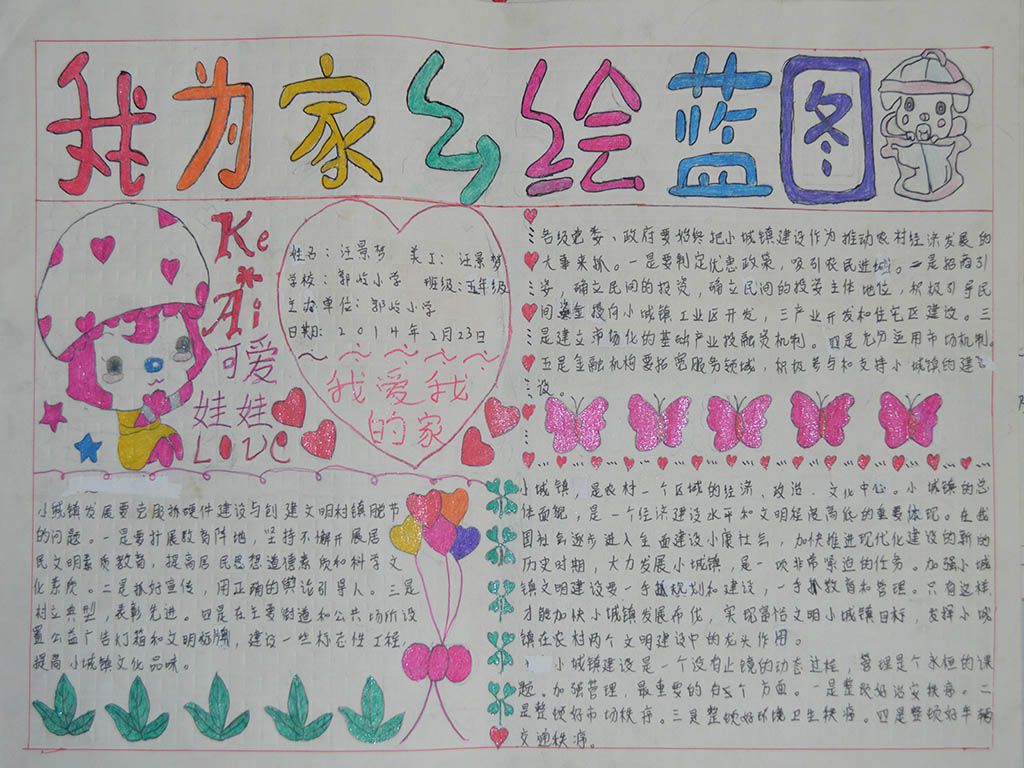 我为家乡绘蓝图
Ke
Ai
可爱
娃娃
LOVE
姓名：汪景梦 美工：汪景梦
学校：郭屹小学 班级：五年级
主办单位：郭屹小学
日期：2014年2月23日
我爱我
的家
各级党委、政府要始终把小城镇建设作为推动农村经济发展的
大事来抓。一是要制定优惠政策，吸引农民进城。二是招商引
资，确立民间的投资，确立民间的投资主体地位，积极引导民
间资金投向小城镇工业区开发，三产业开发和住宅区建设。三
是建立市场化的基础产业投融资机制。四是充分运用市场机制。
五是金融机构要拓宽服务领域，积极参与和支持小城镇的建
设。
小城镇发展要克服抓硬件建设与创建文明村镇脱节
的问题。一是要扩展教育阵地，坚持不懈开展居
民文明素质教育，提高居民思想道德素质和科学文
化素质。二是抓好宣传，用正确的舆论引导人。三是
树立典型，表彰先进。四是在主要街道和公共场所设
置公益广告灯箱和文明标牌，建设一些标志性工程，
提高小城镇文化品味。
小城镇，是农村一个区域的经济、政治、文化中心。小城镇的总
体面貌，是一个经济建设水平和文明程度高低的重要体现。在我
国社会逐步进入全面建设小康社会，加快推进现代化建设的新的
历史时期，大力发展小城镇，是一项非常紧迫的任务。加强小城
镇文明建设要一手抓规划和建设，一手抓教育和管理。只有这样，
才能加快小城镇发展布伐，实现富怡文明小城镇目标，发择小城
镇在农村两个文明建设中的龙头作用。
小城镇建设是一个没有止境的动态过程，管理是个永恒的课
题。加强管理，最重要的有5个方面。一是整顿好治安秩序。二
是整顿好市场秩序。三是整顿好环境卫生秩序。四是整顿好车辆
交通秩序。